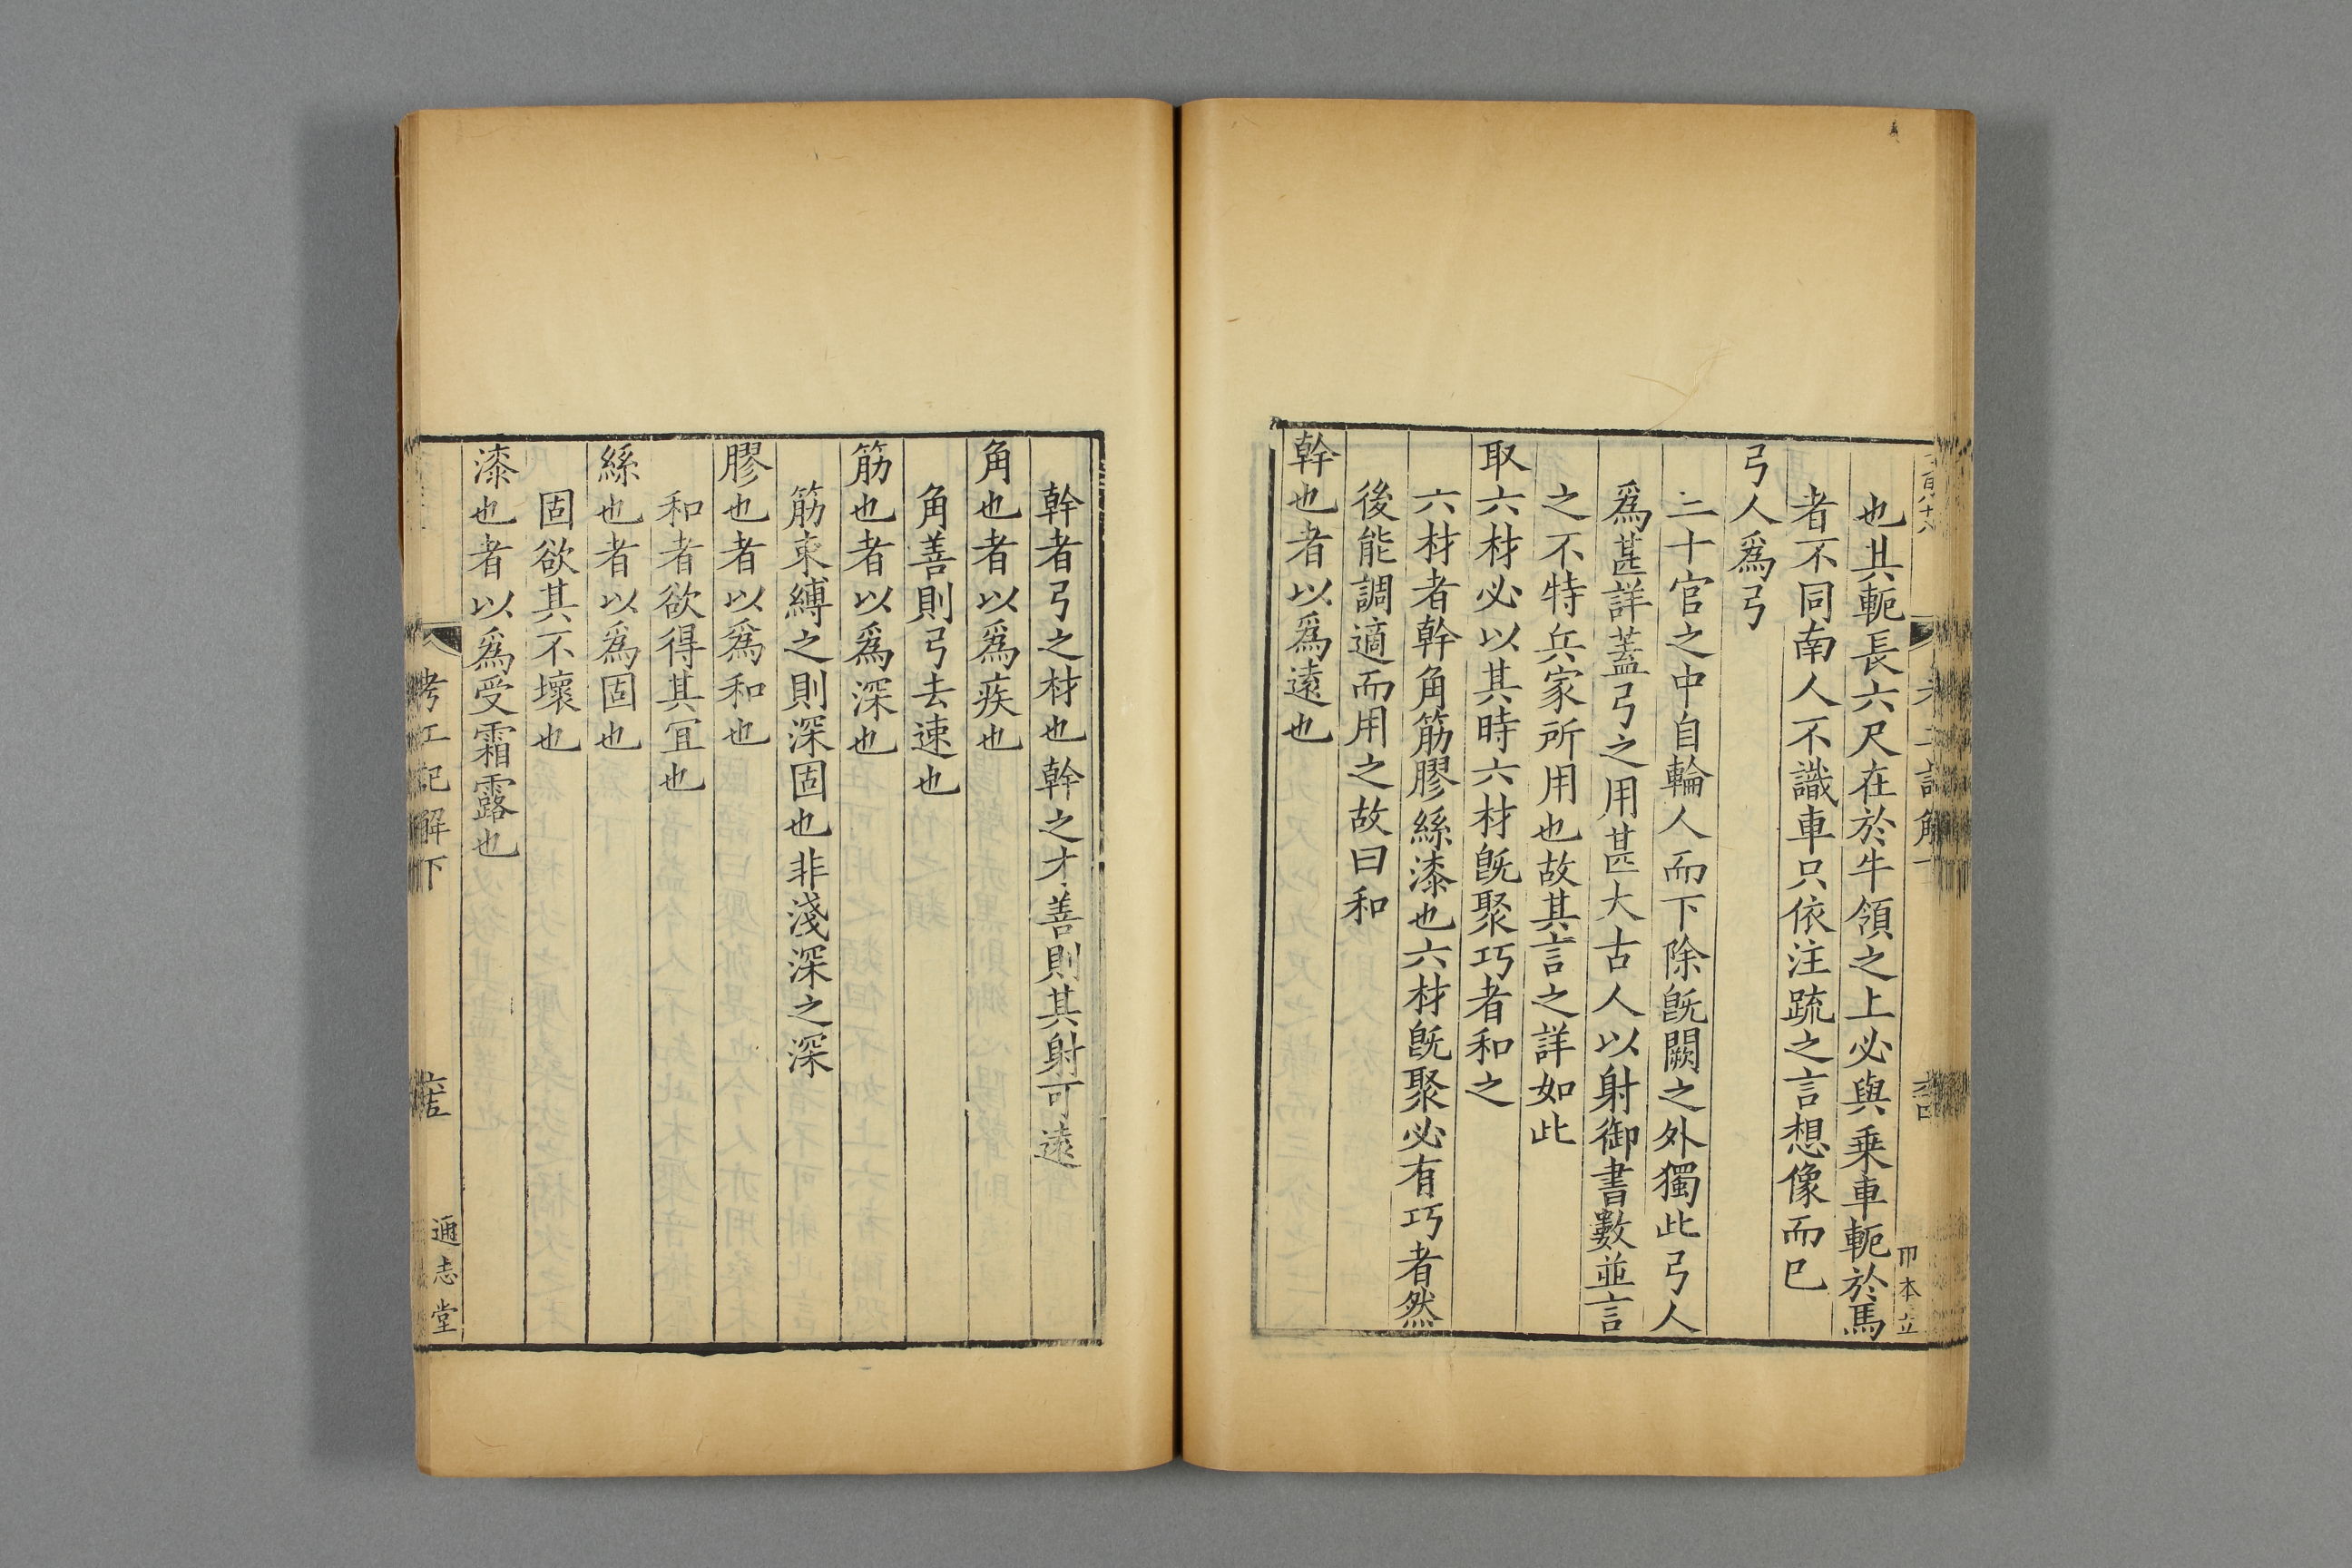 也其軛長六尺在於牛領之上必與乗車軛於馬
者不同南人不識車只依注疏之言想像而巳
弓人爲弓
三十官之中自輪人而下除旣闕之外獨此弓人
爲甚詳蓋弓之用甚大古人以射御書數並言
之不特兵家所用也故其言之詳如此
取六材必以其時六材旣聚巧者和之
六材者幹角筋膠絲漆也六材旣聚必有巧者然
後能調適而用之故曰和
幹也者以爲遠也
幹者弓之材也幹之才善則其射可遠
角也者以爲疾也
角善則弓去速也
筋也者以爲深也
筋束縛之則深固也非淺深之深
膠也者以爲和也
和者欲得其冝也
絲也者以爲固也
固欲其不壞也
漆也者以爲受霜露也
考工記解下
通志堂